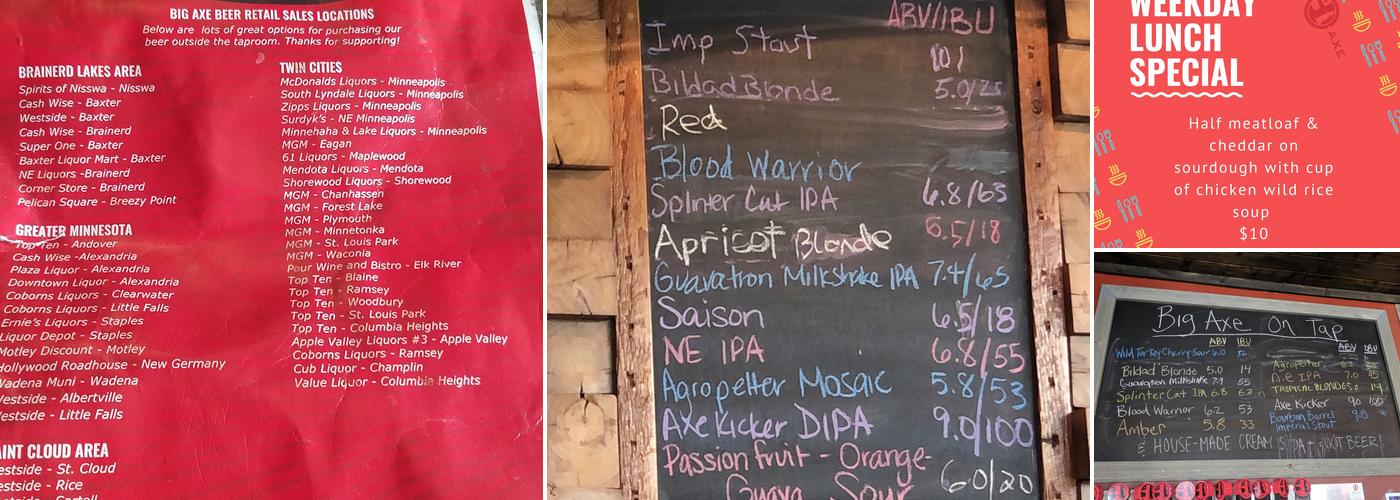 BIG AXE BEER RETAIL SALES LOCATIONS
Below are lots of great options for purchasing our
beer outside the taproom. Thanks for supporting!
BRAINERD LAKES AREA
Spirits of Nisswa - Nisswa
Cash Wise - Baxter
Westside - Baxter
Cash Wise - Brainerd
Super One - Baxter
Baxter Liquor Mart - Baxter
NE Liquors -Brainerd
Corner Store - Brainerd
Pelican Square - Breezy Point
GREATER MINNESOTA
Top Ten - Andover
Cash Wise -Alexandria
Plaza Liquor - Alexandria
Downtown Liquor - Alexandria
Coborns Liquors - Clearwater
Coborns Liquors - Little Falls
Ernie's Liquors - Staples
Liquor Depot - Staples
Motley Discount - Motley
Hollywood Roadhouse - New Germany
Wadena Muni - Wadena
Westside - Albertville
Westside - Little Falls
AINT CLOUD AREA
estside - St. Cloud
estside - Rice
TWIN CITIES
McDonalds Liquors - Minneapolis
South Lyndale Liquors - Minneapolis
Zipps Liquors - Minneapolis
Surdyk's - NE Minneapolis
Minnehaha & Lake Liquors - Minneapolis
MGM - Eagan
61 Liquors - Maplewood
Mendota Liquors - Mendota
Shorewood Liquors - Shorewood
MGM - Chanhassen
MGM - Forest Lake
MGM - Plymouth
MGM - Minnetonka
MGM - St. Louis Park
MGM - Waconia
Pour Wine and Bistro - Elk River
Top Ten - Blaine
Top Ten - Ramsey
Top Ten - Woodbury
Top Ten - St. Louis Park
Top Ten - Columbia Heights
Apple Valley Liquors #3 - Apple Valley
Coborns Liquors - Ramsey
Cub Liquor - Champlin
Value Liquor - Columbia Heights
ABV/IBU
Imp Stout
Bildad Blonde 5.0/25
Red
Blood Warrior
Splinter Cat IPA 6.8/63
Apricot Blonde 5.5/18
Guavatron Milkshake IPA 7.4/65
Saison 6.5/18
NE IPA 6.8/55
Agropelter Mosaic 5.8/53
Axe Kicker DIPA 9.0/100
Passion fruit - Orange-
Guava Sour 6.0/20
WEEKDAY
LUNCH
SPECIAL
AXE
Half meatloaf &
cheddar on
sourdough with cup
of chicken wild rice
soup
$10
Big Axe On Tap
ABV IBU
Wild Turkey Cherry Sour 6.0
Bildad Blonde 5.0 14
Guavatron Milkshake 7.9 55
Splinter Cat IPA 6.8 63
Blood Warrior 6.2 53
Amber 5.8 33
ABV IBU
Agropelter
N.E IPA 7.0 45
TROPICAL BLONDE 5.0 14
Axe Kicker 9.0 100
Bourbon Barrel
Imperial Stout 9.8
& HOUSE-MADE CREAM ROOT BEER!